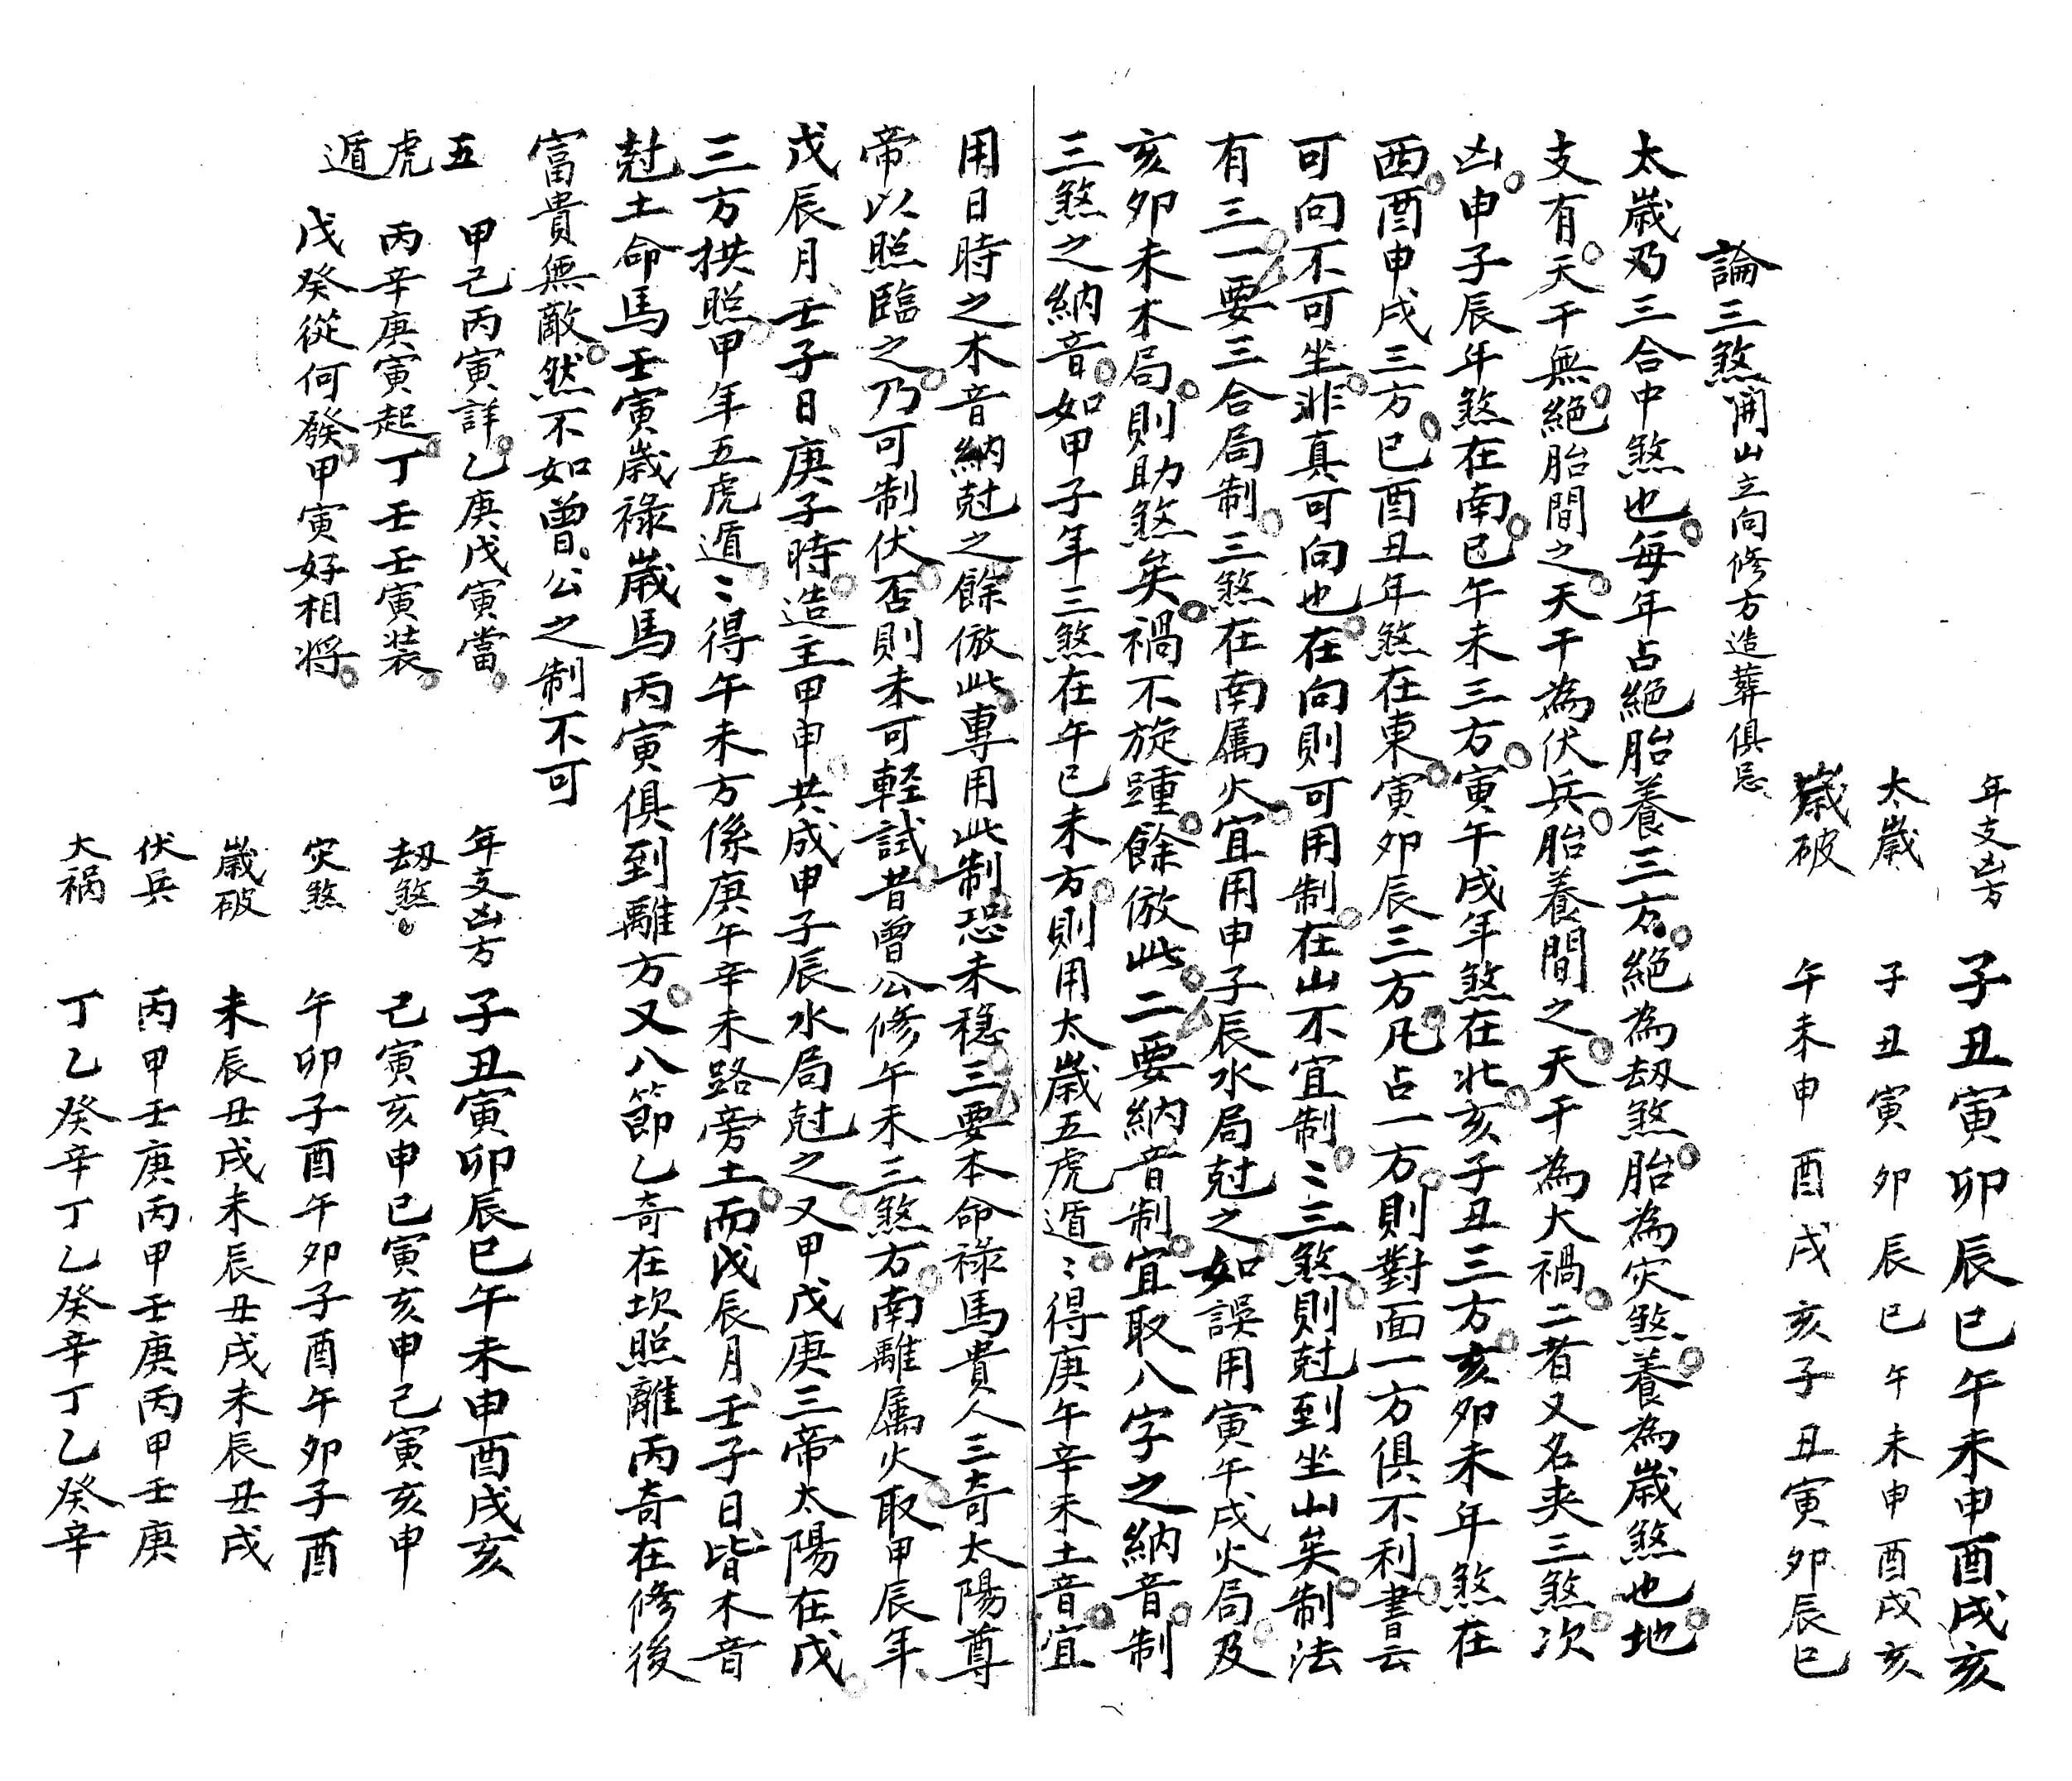 年支凶方　子丑寅卯辰巳午未申酉戌亥
太歲　子丑寅卯辰巳午未申酉戌亥
歲破　午未申酉戌亥子丑寅卯辰巳
論三煞開山立向修方造葬俱忌
太歲乃三合中煞也。每年占絕胎養三方。絕為刼煞。胎為灾煞。養為歲煞也。地
支有。天干無。絕胎間之。天干為伏兵。胎養間之。天干為大禍。二者又名夾三煞。次
凶。申子辰年煞在南。巳午未三方。寅午戌年煞在北。亥子丑三方。亥卯未年煞在
西。酉申戌三方。巳酉丑年煞在東。寅卯辰三方。凡占一方。則對面一方俱不利。書云
可向不可坐。非真可向也。在向則可用制。在山不宜制。〻三煞。則尅到坐山矣。制法
有三。一要三合局制。三煞在南屬火。宜用申子辰水局尅之。如誤用寅午戌火局。及
亥卯未木局。則助煞矣。禍不旋踵。餘倣此。二要納音制。宜取八字之納音。制
三煞之納音。如甲子年三煞在午巳未方。則用太歲五虎遁。〻得庚午辛未土音。宜
用日時之木音納尅之餘倣此。專用此制。恐未穩。三要本命祿馬貴人三奇太陽尊
帝以照臨之。乃可制伏。否則未可輕試。昔曾公修午未三煞方。南離屬火。取甲辰年、
戊辰月、壬子日、庚子時。造主甲申。共成申子辰水局尅之。又甲戊庚三帝太陽在戊。
三方拱照。甲年五虎遁。〻得午未方係庚午辛未路旁土。而戊辰月、壬子日、皆木音
尅土命馬壬寅歲祿歲馬丙寅俱到離方。又八節乙奇在坎照離丙奇在修後
富貴無敵。然不如曾公之制不可
五虎遁
甲己丙寅詳。乙庚戊寅當。
丙辛庚寅起。丁壬壬寅装。
戊癸從何發。甲寅好相將。
年支凶方　子丑寅卯辰巳午未申酉戌亥
刼煞。　己寅亥申巳寅亥申己寅亥申
灾煞　午卯子酉午卯子酉午卯子酉
歲破　未辰丑戌未辰丑戌未辰丑戌
伏兵　丙甲壬庚丙甲壬庚丙甲壬庚
大禍　丁乙癸辛丁乙癸辛丁乙癸辛